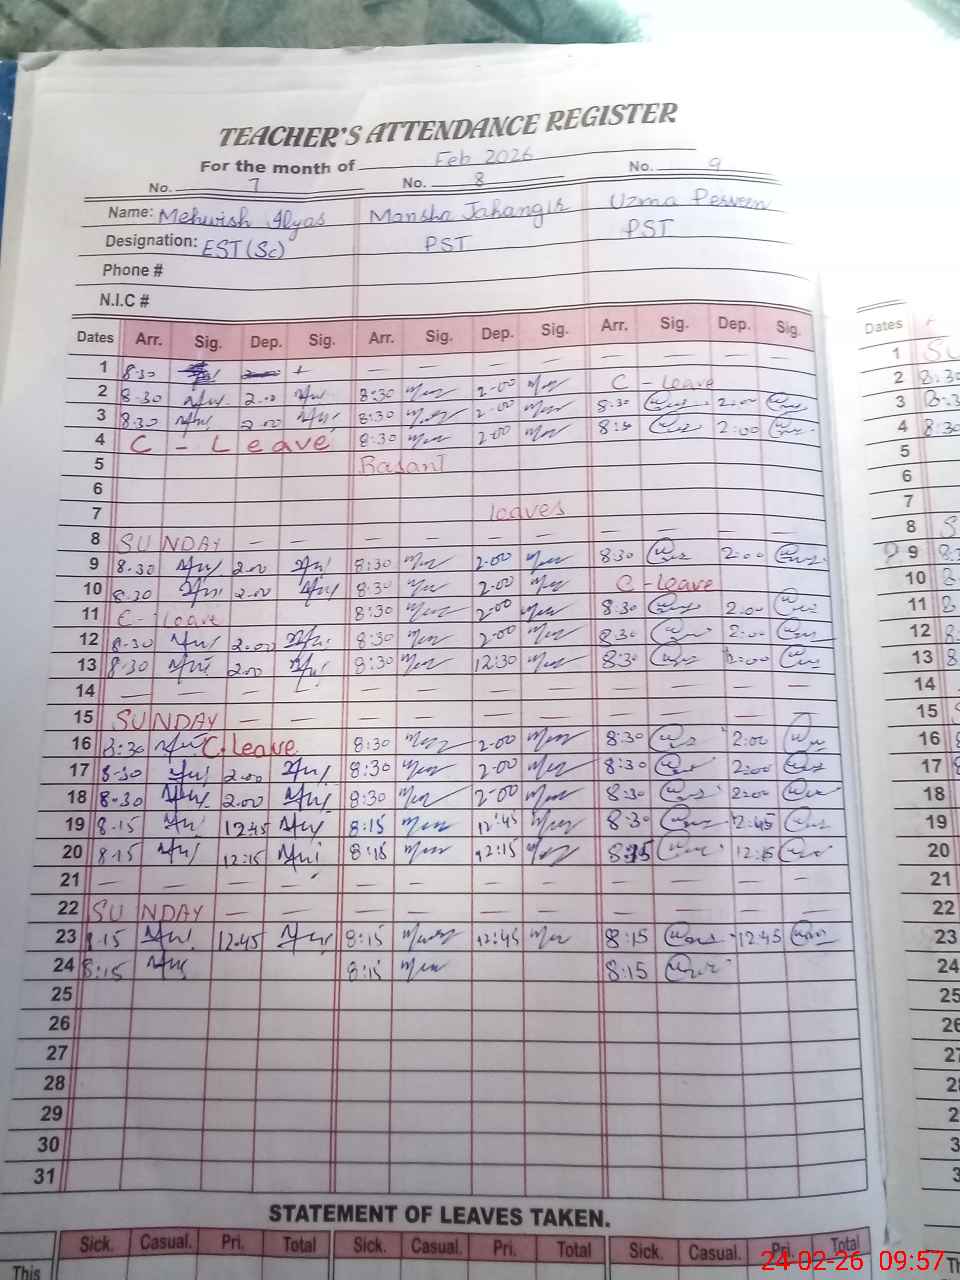 TEACHER'S ATTENDANCE REGISTER
For the month of Feb 2026
No. 7 No. 8 No. 9
Name: Mehwish Ilyas Mansha Jahangir Uzma Perveen
Designation: EST (Sc) PST PST
Phone #
N.I.C #
Dates Arr. Sig. Dep. Sig. Arr. Sig. Dep. Sig. Arr. Sig. Dep. Sig.
1 8.30 — — — — — — — —
2 8.30 2.00 8:30 2.00 C - Leave
3 8.30 2.00 8:30 2.00 8.30 2:00
4 C - Leave 8:30 2.00 8:30 2:00
5 Basant
6
7 leaves
8 SUNDAY — — — — — — — — — —
9 8.30 2.00 8:30 2.00 8:30 2:00
10 8.30 2.00 8:30 2.00 C - leave
11 C - leave 8:30 2.00 8:30 2:00
12 8.30 2.00 8:30 2.00 8:30 2:00
13 8.30 2.00 8:30 12:30 8:30 2:00
14 — — — — — — — — — — — —
15 SUNDAY — — — — — — — — — —
16 8:30 C-Leave 8:30 2.00 8:30 2:00
17 8.30 2.00 8:30 2.00 8:30 2:00
18 8.30 2.00 8:30 2.00 8:30 2:00
19 8.15 12.45 8:15 12:45 8:30 12:45
20 8.15 12:15 8:15 12:15 12:15
21 — — — — — — — — — — — —
22 SUNDAY — — — — — — — — — —
23 8.15 12.45 8:15 12:45 8:15 12:45
24 8:15 8:15 8:15
25
26
27
28
29
30
31
STATEMENT OF LEAVES TAKEN.
Sick. Casual. Pri. Total Sick. Casual. Pri. Total Sick. Casual. Pri. Total
This
Dates
1
2 8:30
3 8:30
4 8:30
5
6
7
8
9
10
11
12
13
14
15
16
17
18
19
20
21
22
23
24
25
24-02-26 09:57